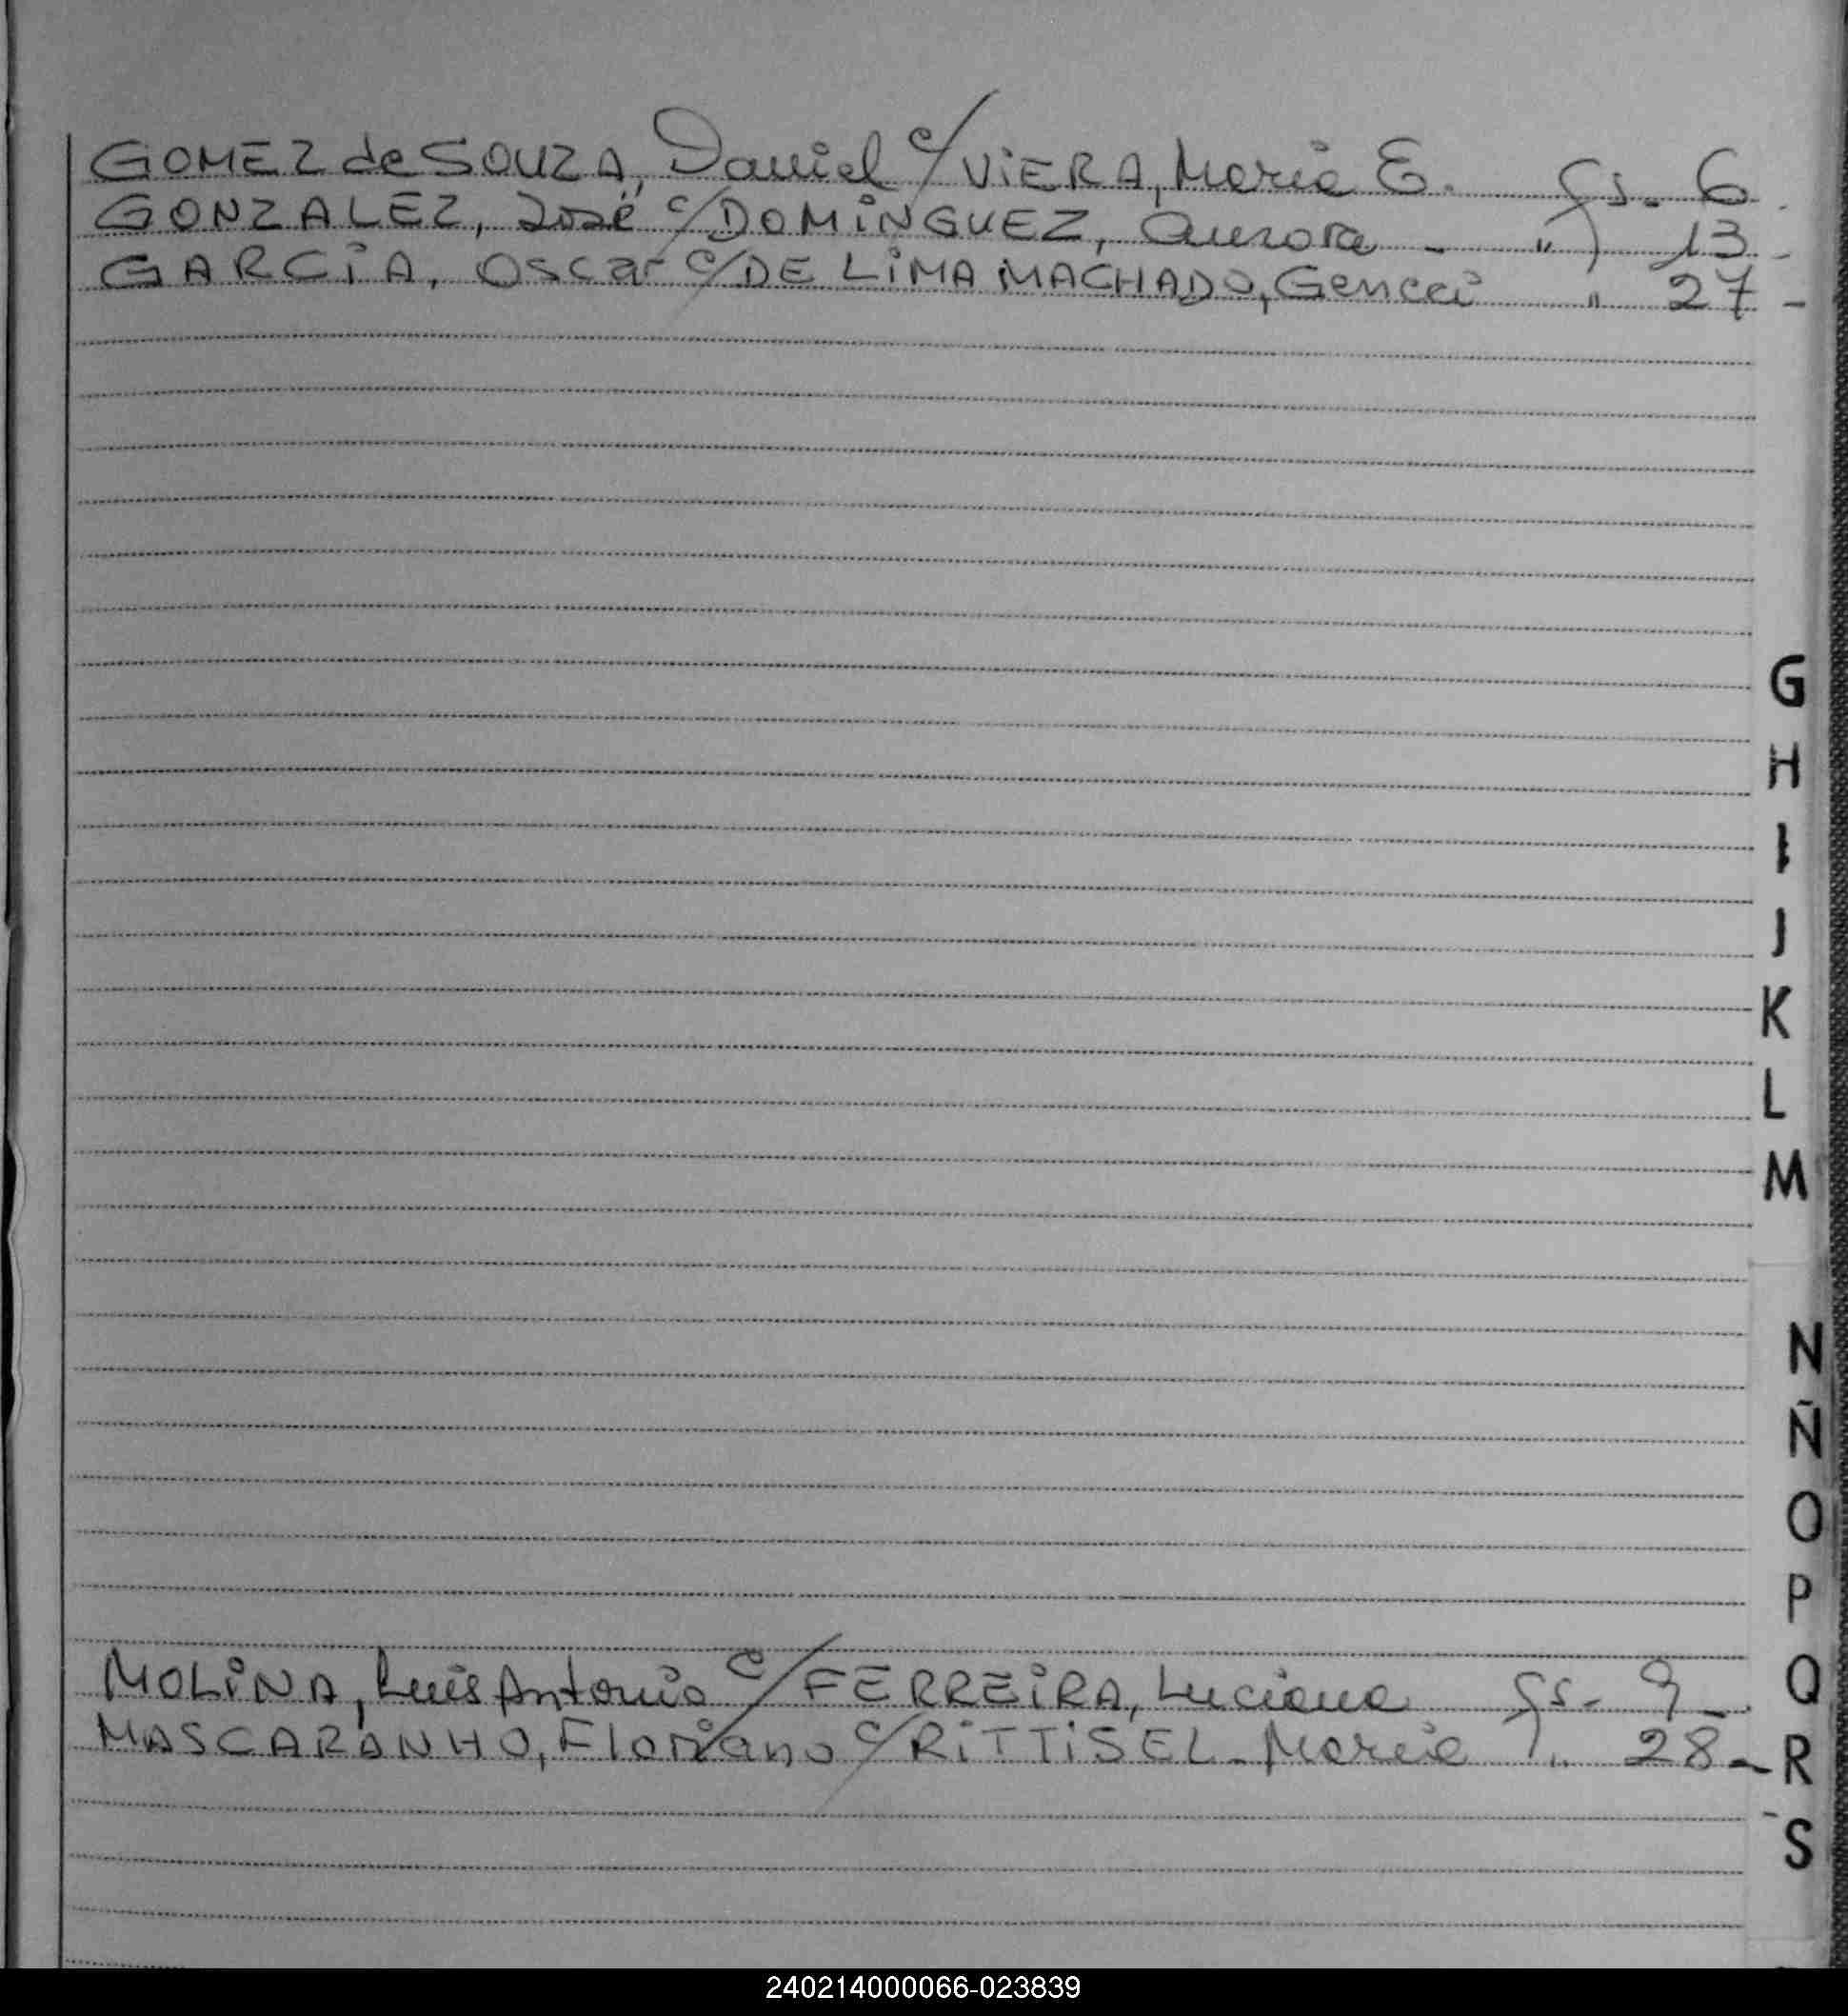 GOMEZ de SOUZA, Daniel c/ VIERA, Maria E. fs. 6
GONZALEZ, José c/ DOMINGUEZ, Aurora - " 13 -
GARCIA, Oscar c/ DE LIMA MACHADO, " 27 -
G
H
I
J
K
L
M
N
Ñ
O
P
MOLINA, Luis Antonio c/ FERREIRA, Luciana fs. 9
Q
MASCARANHO, Floriano c/ RITTISEL - Maria " 28 -
R
S
240214000066-023839